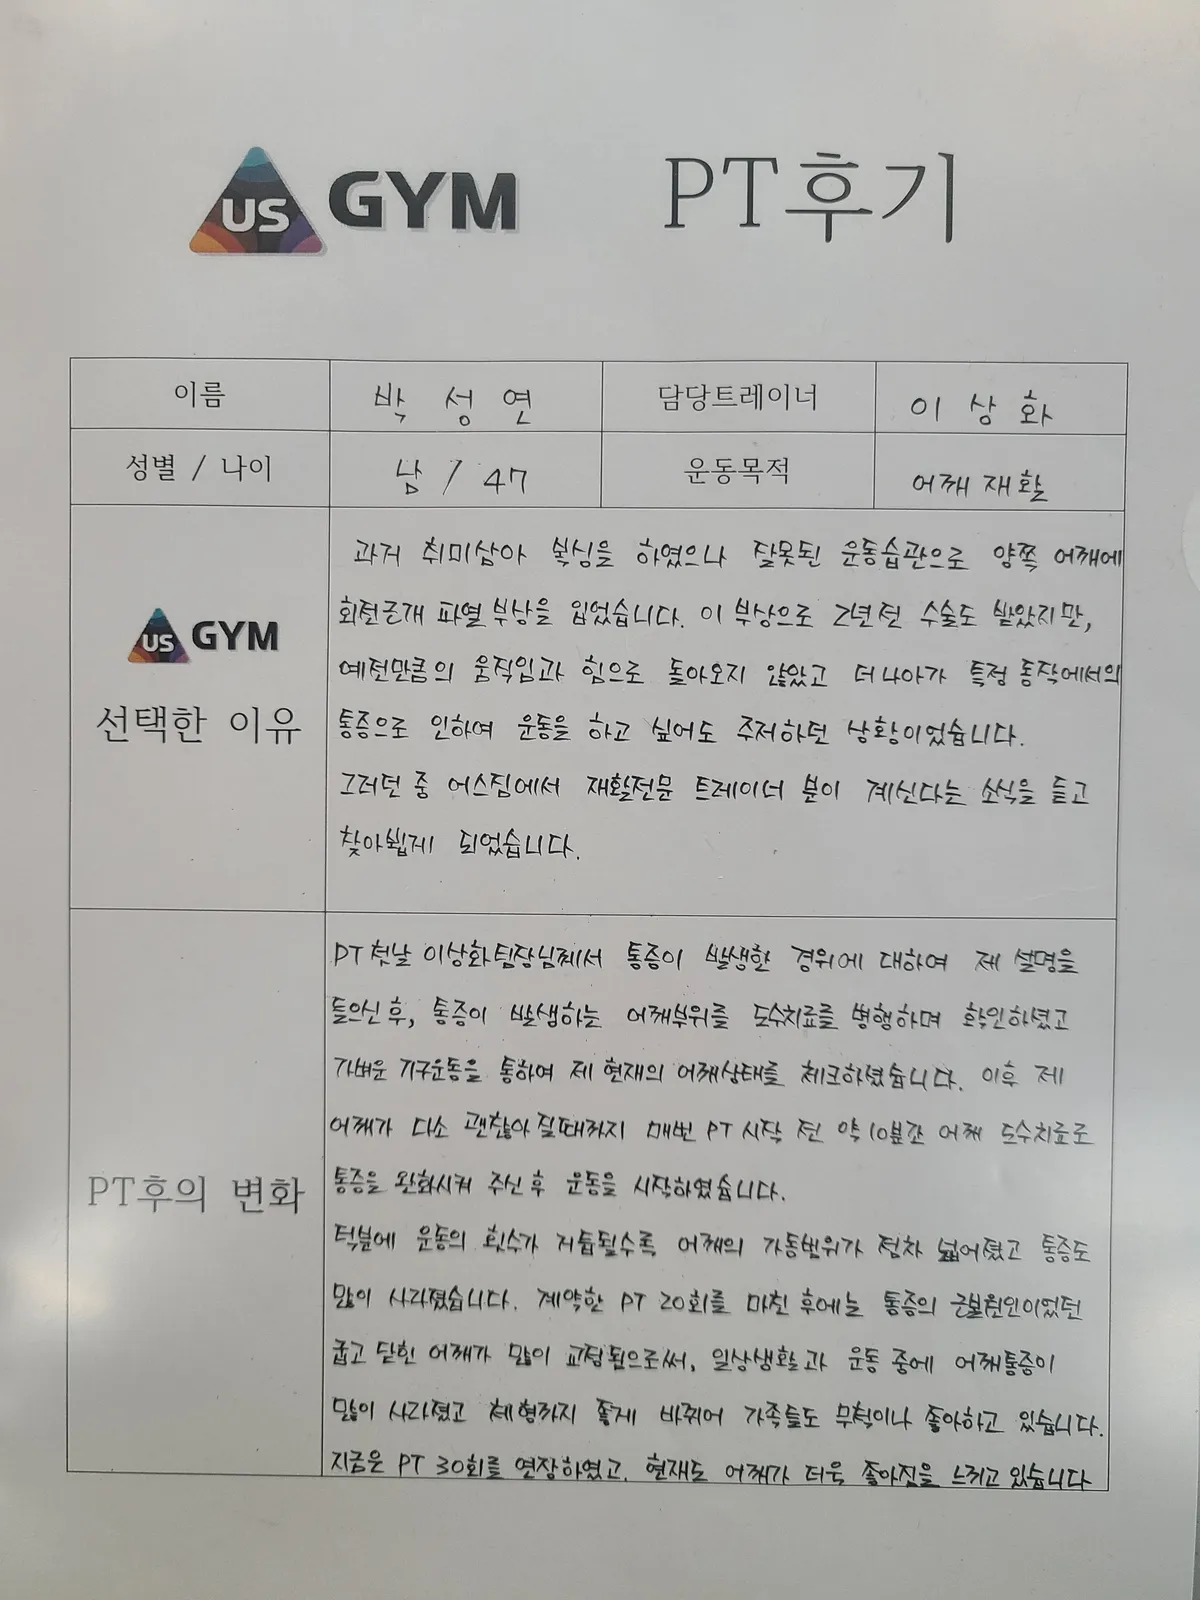 US GYM PT후기
이름 박성연 담당트레이너 이상화
성별 / 나이 남 / 47 운동목적 어깨재활
US GYM
선택한 이유
과거 취미삼아 복싱을 하였으나 잘못된 운동습관으로 양쪽 어깨에
회전근개 파열부상을 입었습니다. 이 부상으로 2년전 수술도 받았지만,
예전만큼의 움직임과 힘으로 돌아오지 않았고 더나아가 특정동작에서의
통증으로 인하여 운동을 하고 싶어도 주저하던 상황이었습니다.
그러던 중 어스짐에서 재활전문 트레이너 분이 계신다는 소식을 듣고
찾아뵙게 되었습니다.
PT후의 변화
PT 첫날 이상화팀장님께서 통증이 발생한 경위에 대하여 제 설명을
들으신 후, 통증이 발생하는 어깨부위를 도수치료를 병행하며 확인하셨고
가벼운 기구운동을 통하여 제 현재의 어깨상태를 체크하셨습니다. 이후 제
어깨가 다소 괜찮아질때까지 매번 PT 시작 전 약 10분간 어깨 도수치료로
통증을 완화시켜 주신 후 운동을 시작하였습니다.
덕분에 운동의 횟수가 거듭될수록 어깨의 가동범위가 점차 넓어졌고 통증도
많이 사라졌습니다. 계약한 PT 20회를 마친 후에는 통증의 근본원인이었던
굽고 닫힌 어깨가 많이 교정됨으로써, 일상생활과 운동 중에 어깨통증이
많이 사라졌고 체형까지 좋게 바뀌어 가족들도 무척이나 좋아하고 있습니다.
지금은 PT 30회를 연장하였고, 현재도 어깨가 더욱 좋아짐을 느끼고 있습니다